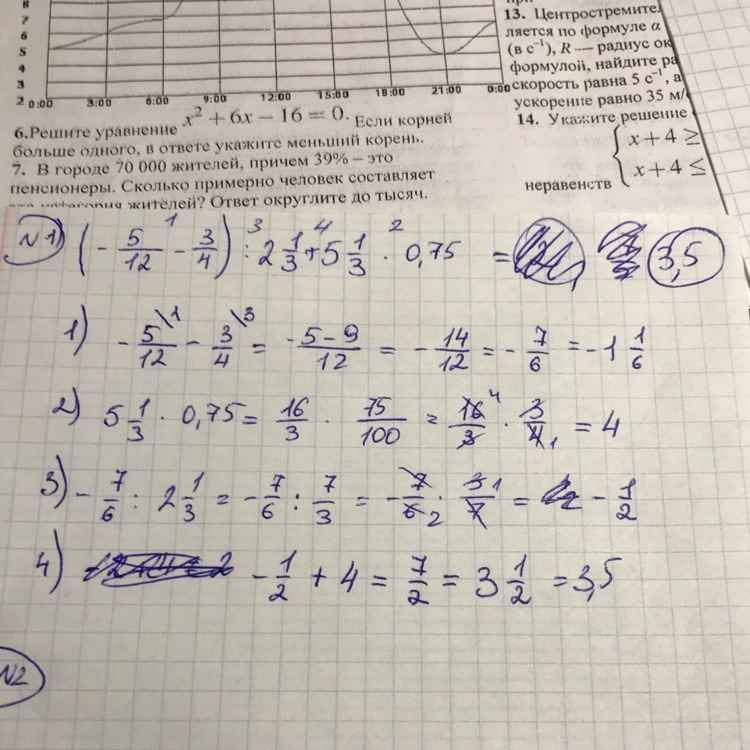 8
7
6
5
4
3
2 0:00 3:00 6:00 9:00 12:00 15:00 18:00 21:00 0:00
6.Решите уравнение x² + 6x − 16 = 0. Если корней
больше одного, в ответе укажите меньший корень.
7. В городе 70 000 жителей, причем 39% – это
пенсионеры. Сколько примерно человек составляет
эта категория жителей? Ответ округлите до тысяч.
13. Центростремите
ляется по формуле α
(в с⁻¹), R — радиус ок
формулой, найдите ра
скорость равна 5 с⁻¹, а
ускорение равно 35 м/
14. Укажите решение
неравенств { x + 4 ≥
x + 4 ≤
N1) (- 5/12 - 3/4) : 2 1/3 + 5 1/3 · 0,75 = 3,5
1 3 4 2
1) - 5/12 \1 - 3/4 \3 = -5-9/12 = - 14/12 = - 7/6 = -1 1/6
2) 5 1/3 · 0,75 = 16/3 · 75/100 = 16/3 · 3/4 = 4
3) - 7/6 : 2 1/3 = - 7/6 : 7/3 = - 7/6 · 3/7 = - 1/2
4) - 1/2 + 4 = 7/2 = 3 1/2 = 3,5
N2